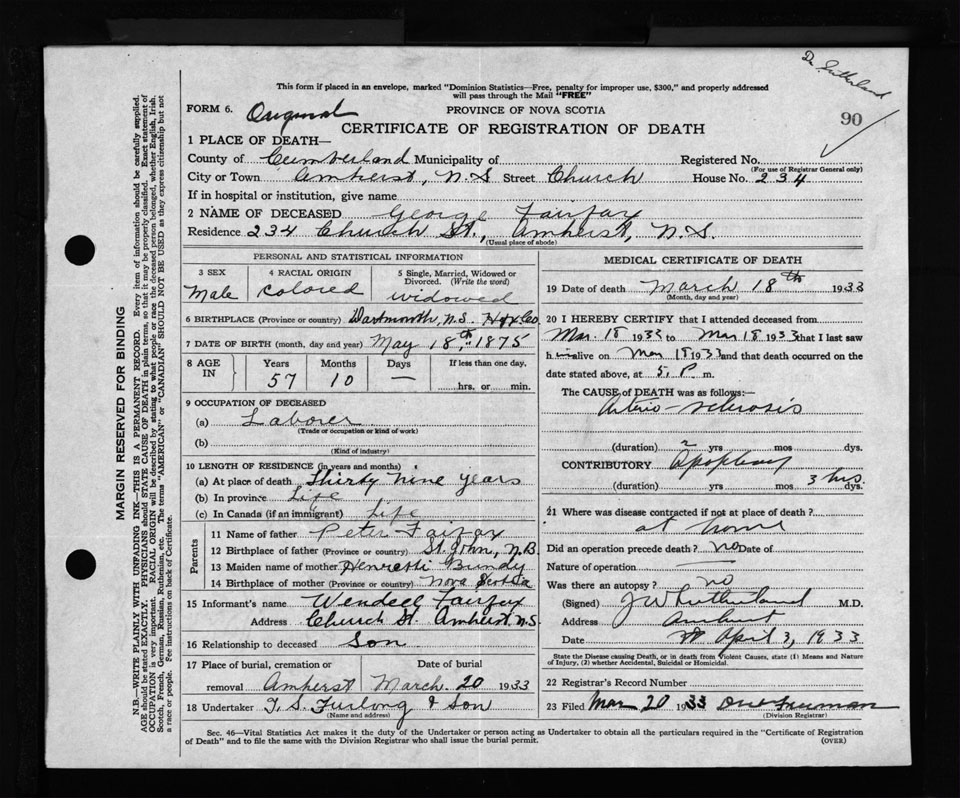 Dr. Sutherland
This form if placed in an envelope, marked "Dominion Statistics—Free, penalty for improper use, $300," and properly addressed
will pass through the Mail "FREE"
90
FORM 6. Original PROVINCE OF NOVA SCOTIA
CERTIFICATE OF REGISTRATION OF DEATH
1 PLACE OF DEATH—
County of Cumberland Municipality of Registered No.
(For use of Registrar General only)
City or Town Amherst, N.S Street Church House No. 234
If in hospital or institution, give name
2 NAME OF DECEASED George Fairfax
Residence 234 Church St., Amherst, N.S.
(Usual place of abode)
PERSONAL AND STATISTICAL INFORMATION
3 SEX 4 RACIAL ORIGIN 5 Single, Married, Widowed or
Divorced. (Write the word)
Male colored widowed
6 BIRTHPLACE (Province or country) Dartmouth, N.S. Hfx Co.
7 DATE OF BIRTH (month, day and year) May 18th, 1875
8 AGE IN Years Months Days If less than one day.
57 10 — hrs. or min.
9 OCCUPATION OF DECEASED
(a) Laborer
(Trade or occupation or kind of work)
(b)
(Kind of industry)
10 LENGTH OF RESIDENCE (in years and months)
(a) At place of death Thirty nine years
(b) In province Life
(c) In Canada (if an immigrant) Life
Parents
11 Name of father Peter Fairfax
12 Birthplace of father (Province or country) St. John, N.B.
13 Maiden name of mother Henretti Bundy
14 Birthplace of mother (Province or country) Nova Scotia
15 Informant's name Wendell Fairfax
Address Church St. Amherst N.S.
16 Relationship to deceased Son
17 Place of burial, cremation or Date of burial
removal Amherst March. 20 1933
18 Undertaker T. S. Furlong & Son
(Name and address)
MEDICAL CERTIFICATE OF DEATH
19 Date of death March 18th 1933
(Month, day and year)
20 I HEREBY CERTIFY that I attended deceased from
Mar. 18 1933 to Mar 18 1933 that I last saw
him alive on Mar 18 1933 and that death occurred on the
date stated above, at 5. P. m.
The CAUSE OF DEATH was as follows:—
Arterio-sclerosis
(duration) ? yrs mos dys.
CONTRIBUTORY Apoplexy
(duration) yrs. mos. 3 hrs dys.
21 Where was disease contracted if not at place of death?
at home
Did an operation precede death? no Date of
Nature of operation
Was there an autopsy? no
(Signed) J W Sutherland M.D.
Address Amherst
Date April 3, 1933
State the Disease causing Death, or in death from Violent Causes, state (1) Means and Nature
of Injury, (2) whether Accidental, Suicidal or Homicidal.
22 Registrar's Record Number
23 Filed Mar 20 1933 Freeman
(Division Registrar)
Sec. 46—Vital Statistics Act makes it the duty of the Undertaker or person acting as Undertaker to obtain all the particulars required in the "Certificate of Registration
of Death" and to file the same with the Division Registrar who shall issue the burial permit. (OVER)
MARGIN RESERVED FOR BINDING
N.B.—WRITE PLAINLY WITH UNFADING INK—THIS IS A PERMANENT RECORD. Every item of information should be carefully supplied.
AGE should be stated EXACTLY. PHYSICIANS should STATE CAUSE OF DEATH in plain terms, so that it may be properly classified. Exact statement of
OCCUPATION is very important. RACIAL ORIGIN will be described by stating to what people or race the deceased person belonged, whether English, Irish,
Scotch, French, German, Russian, Ruthenian, etc. The terms "AMERICAN" or "CANADIAN" SHOULD NOT BE USED as they express citizenship but not
a race or people. See instructions on back of Certificate.